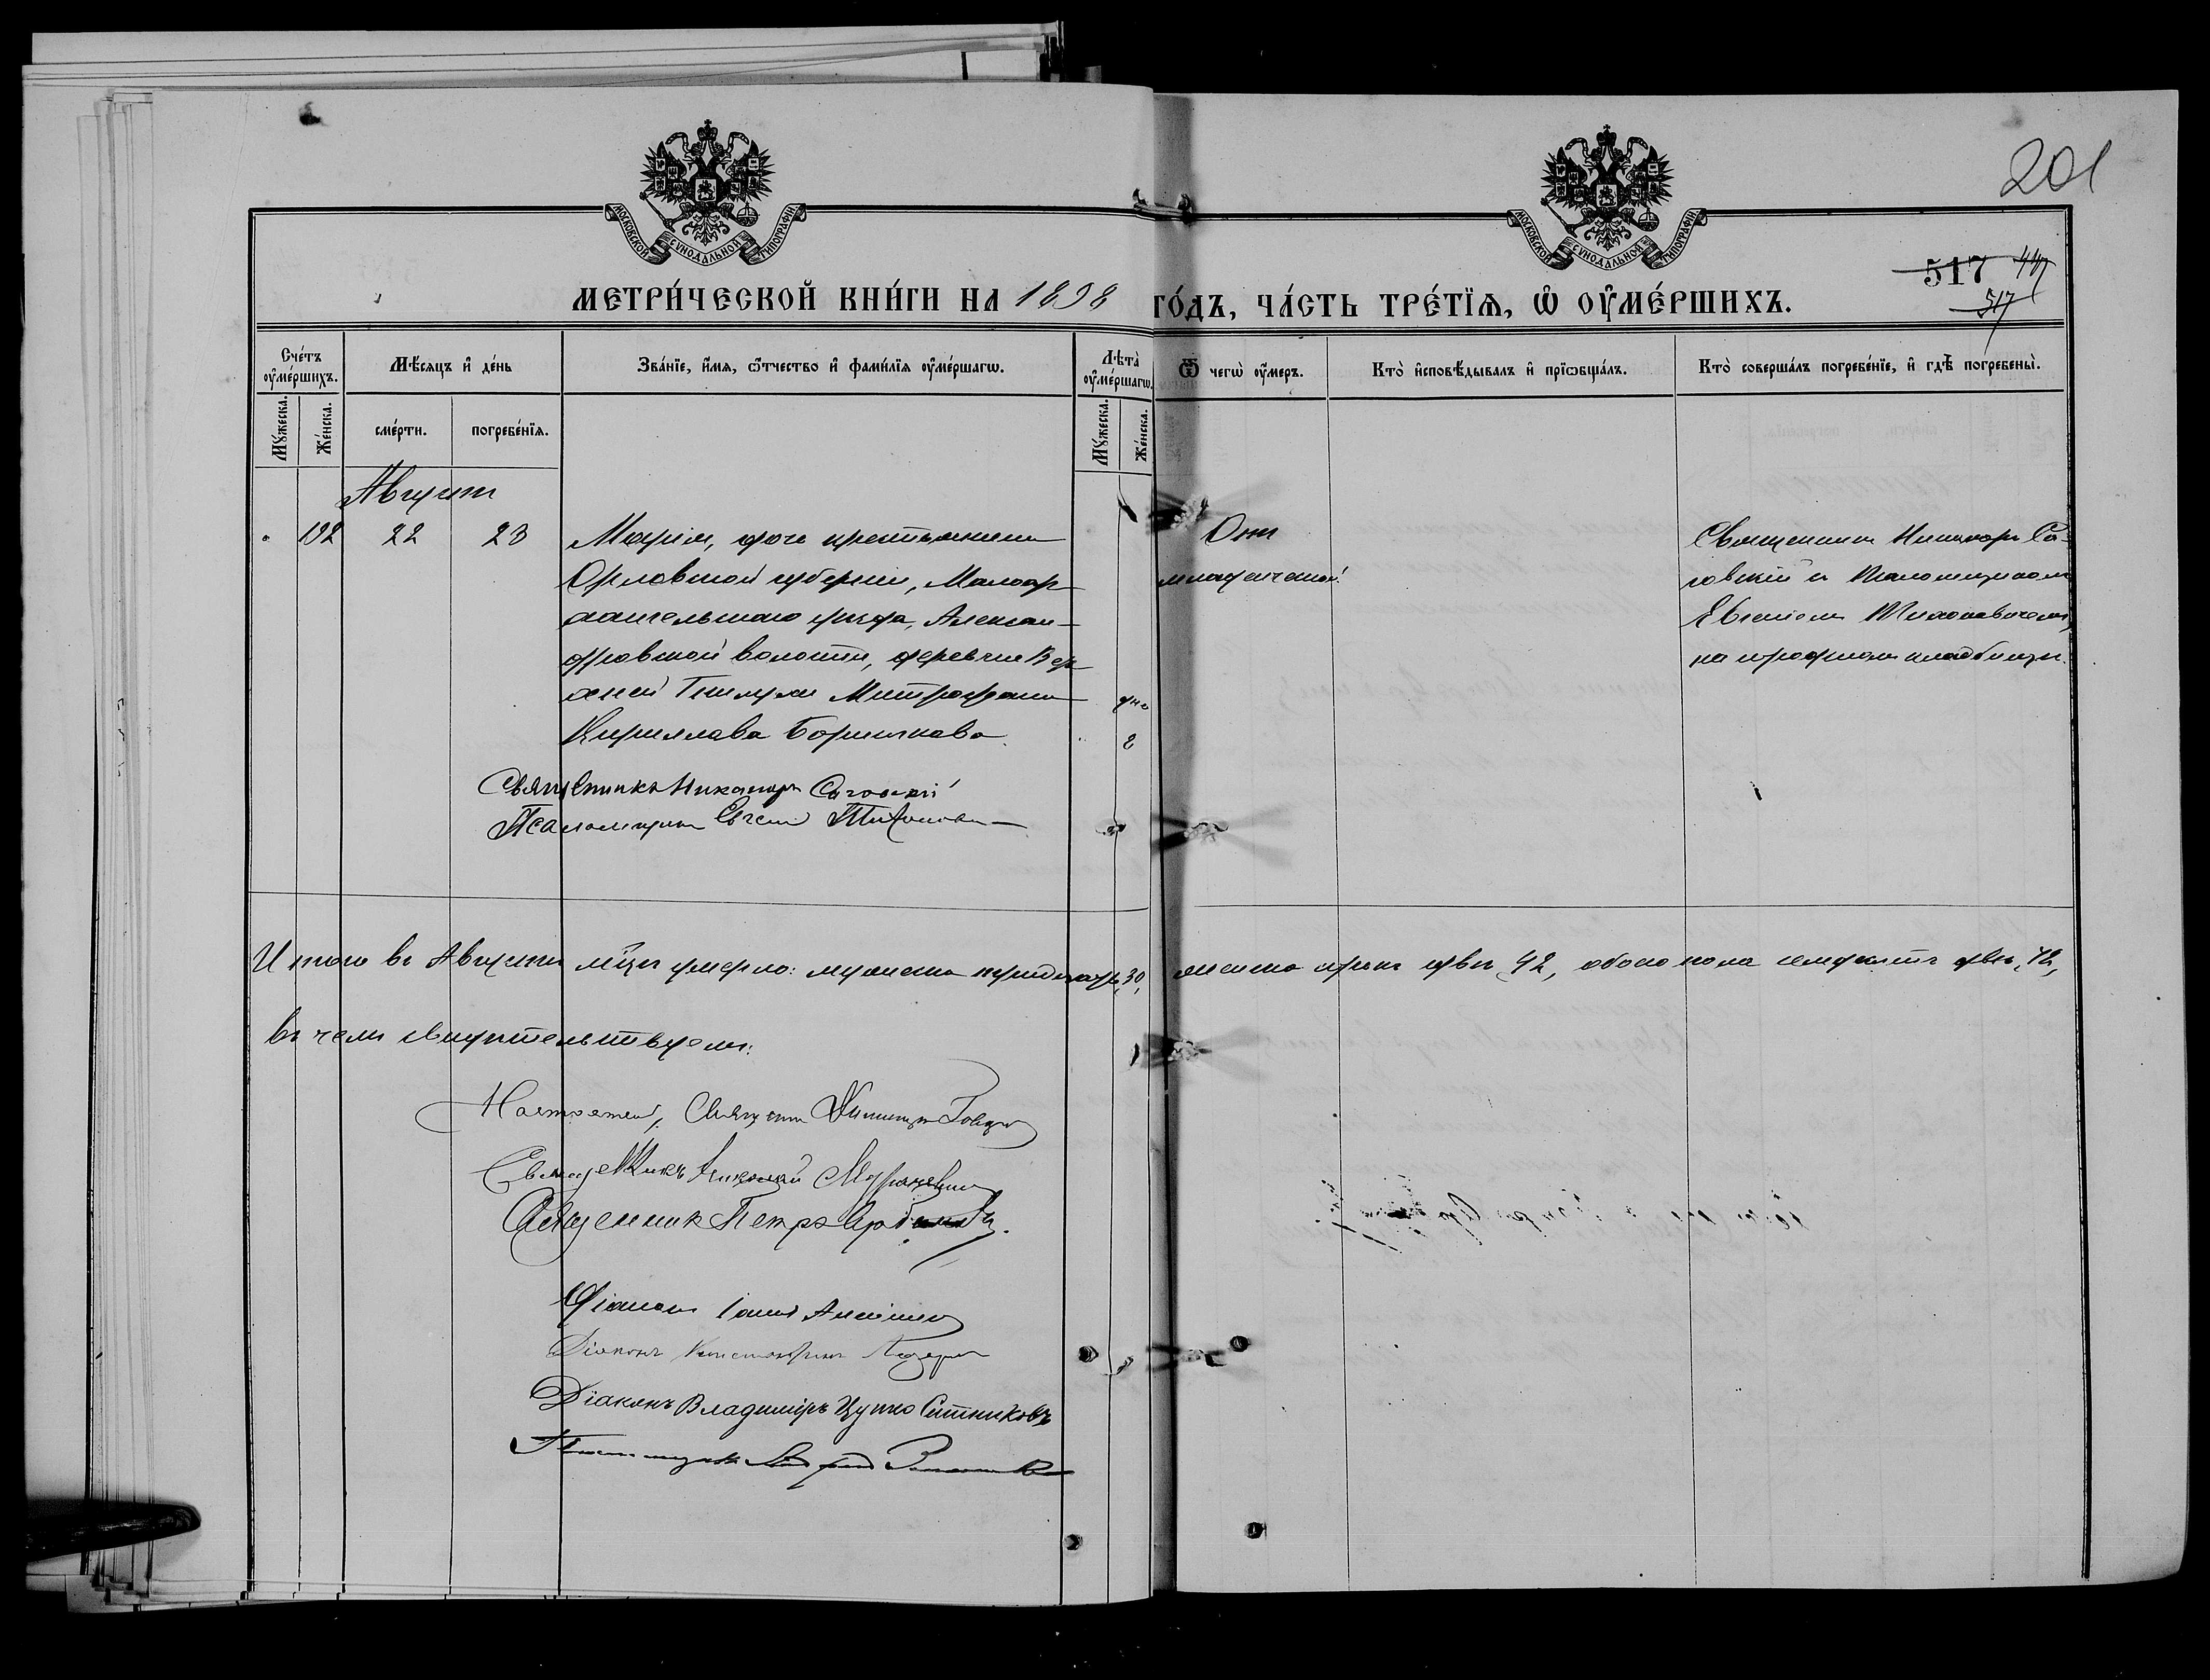 201
МОСКОВСКОЙ СѴНОДАЛЬНОЙ ТИПОГРАФІИ
МОСКОВСКОЙ СѴНОДАЛЬНОЙ ТИПОГРАФІИ
517 447
517
МЕТРИ́ЧЕСКОЙ КНИ́ГИ НА 1898 ГО́ДЪ, ЧА́СТЬ ТРЕ́ТЇѦ, Ѽ ОУМЕ́РШИХЪ.
Сче́тъ оумє́ршихъ.
Мѣ́сяцъ и дє́нь
Зва́нїе, и́мя, ѻ́тчество и фами́лїя оумє́ршагѡ.
Лѣта̀ оумє́ршагѡ.
Ѿ чегѡ̀ оу́меръ.
Кто̀ исповѣ́дывалъ и прїѡбща́лъ.
Кто̀ соверша́лъ погребє́нїе, и гдѣ̀ погребены̀.
Мꙋ́жеска.
Же́нска.
смє́рти.
погребє́нїя.
Мꙋ́жеска.
Же́нска.
Августъ
192 22 23 Марія, дочь крестьянина
Орловской губерніи, Малоар-
хангельскаго уѣзда, Алексан-
дровской волости, деревни Вер-
хней Митрофана
Кириллова
дне
2
Отъ
младенческой.
Священникъ Никаноръ Са-
говскій съ Псаломщикомъ
Евгеніемъ Тихоновичемъ,
на городскомъ кладбищѣ.
Священникъ Никаноръ Саговскій
Псаломщикъ Евгеній Тихонович
Итого въ Августѣ мѣсцѣ умерло: мужеска тридцать, 30, женска сорокъ двѣ, 42, обоего пола семдесятъ двѣ, 72,
въ чемъ свидѣтельствуемъ:
Настоятель, Священ
Священникъ Николай
Священникъ Петръ
Діаконъ Іоаннъ
Діаконъ Константинъ
Діаконъ Владиміръ Цупко Ситниковъ
Псаломщикъ